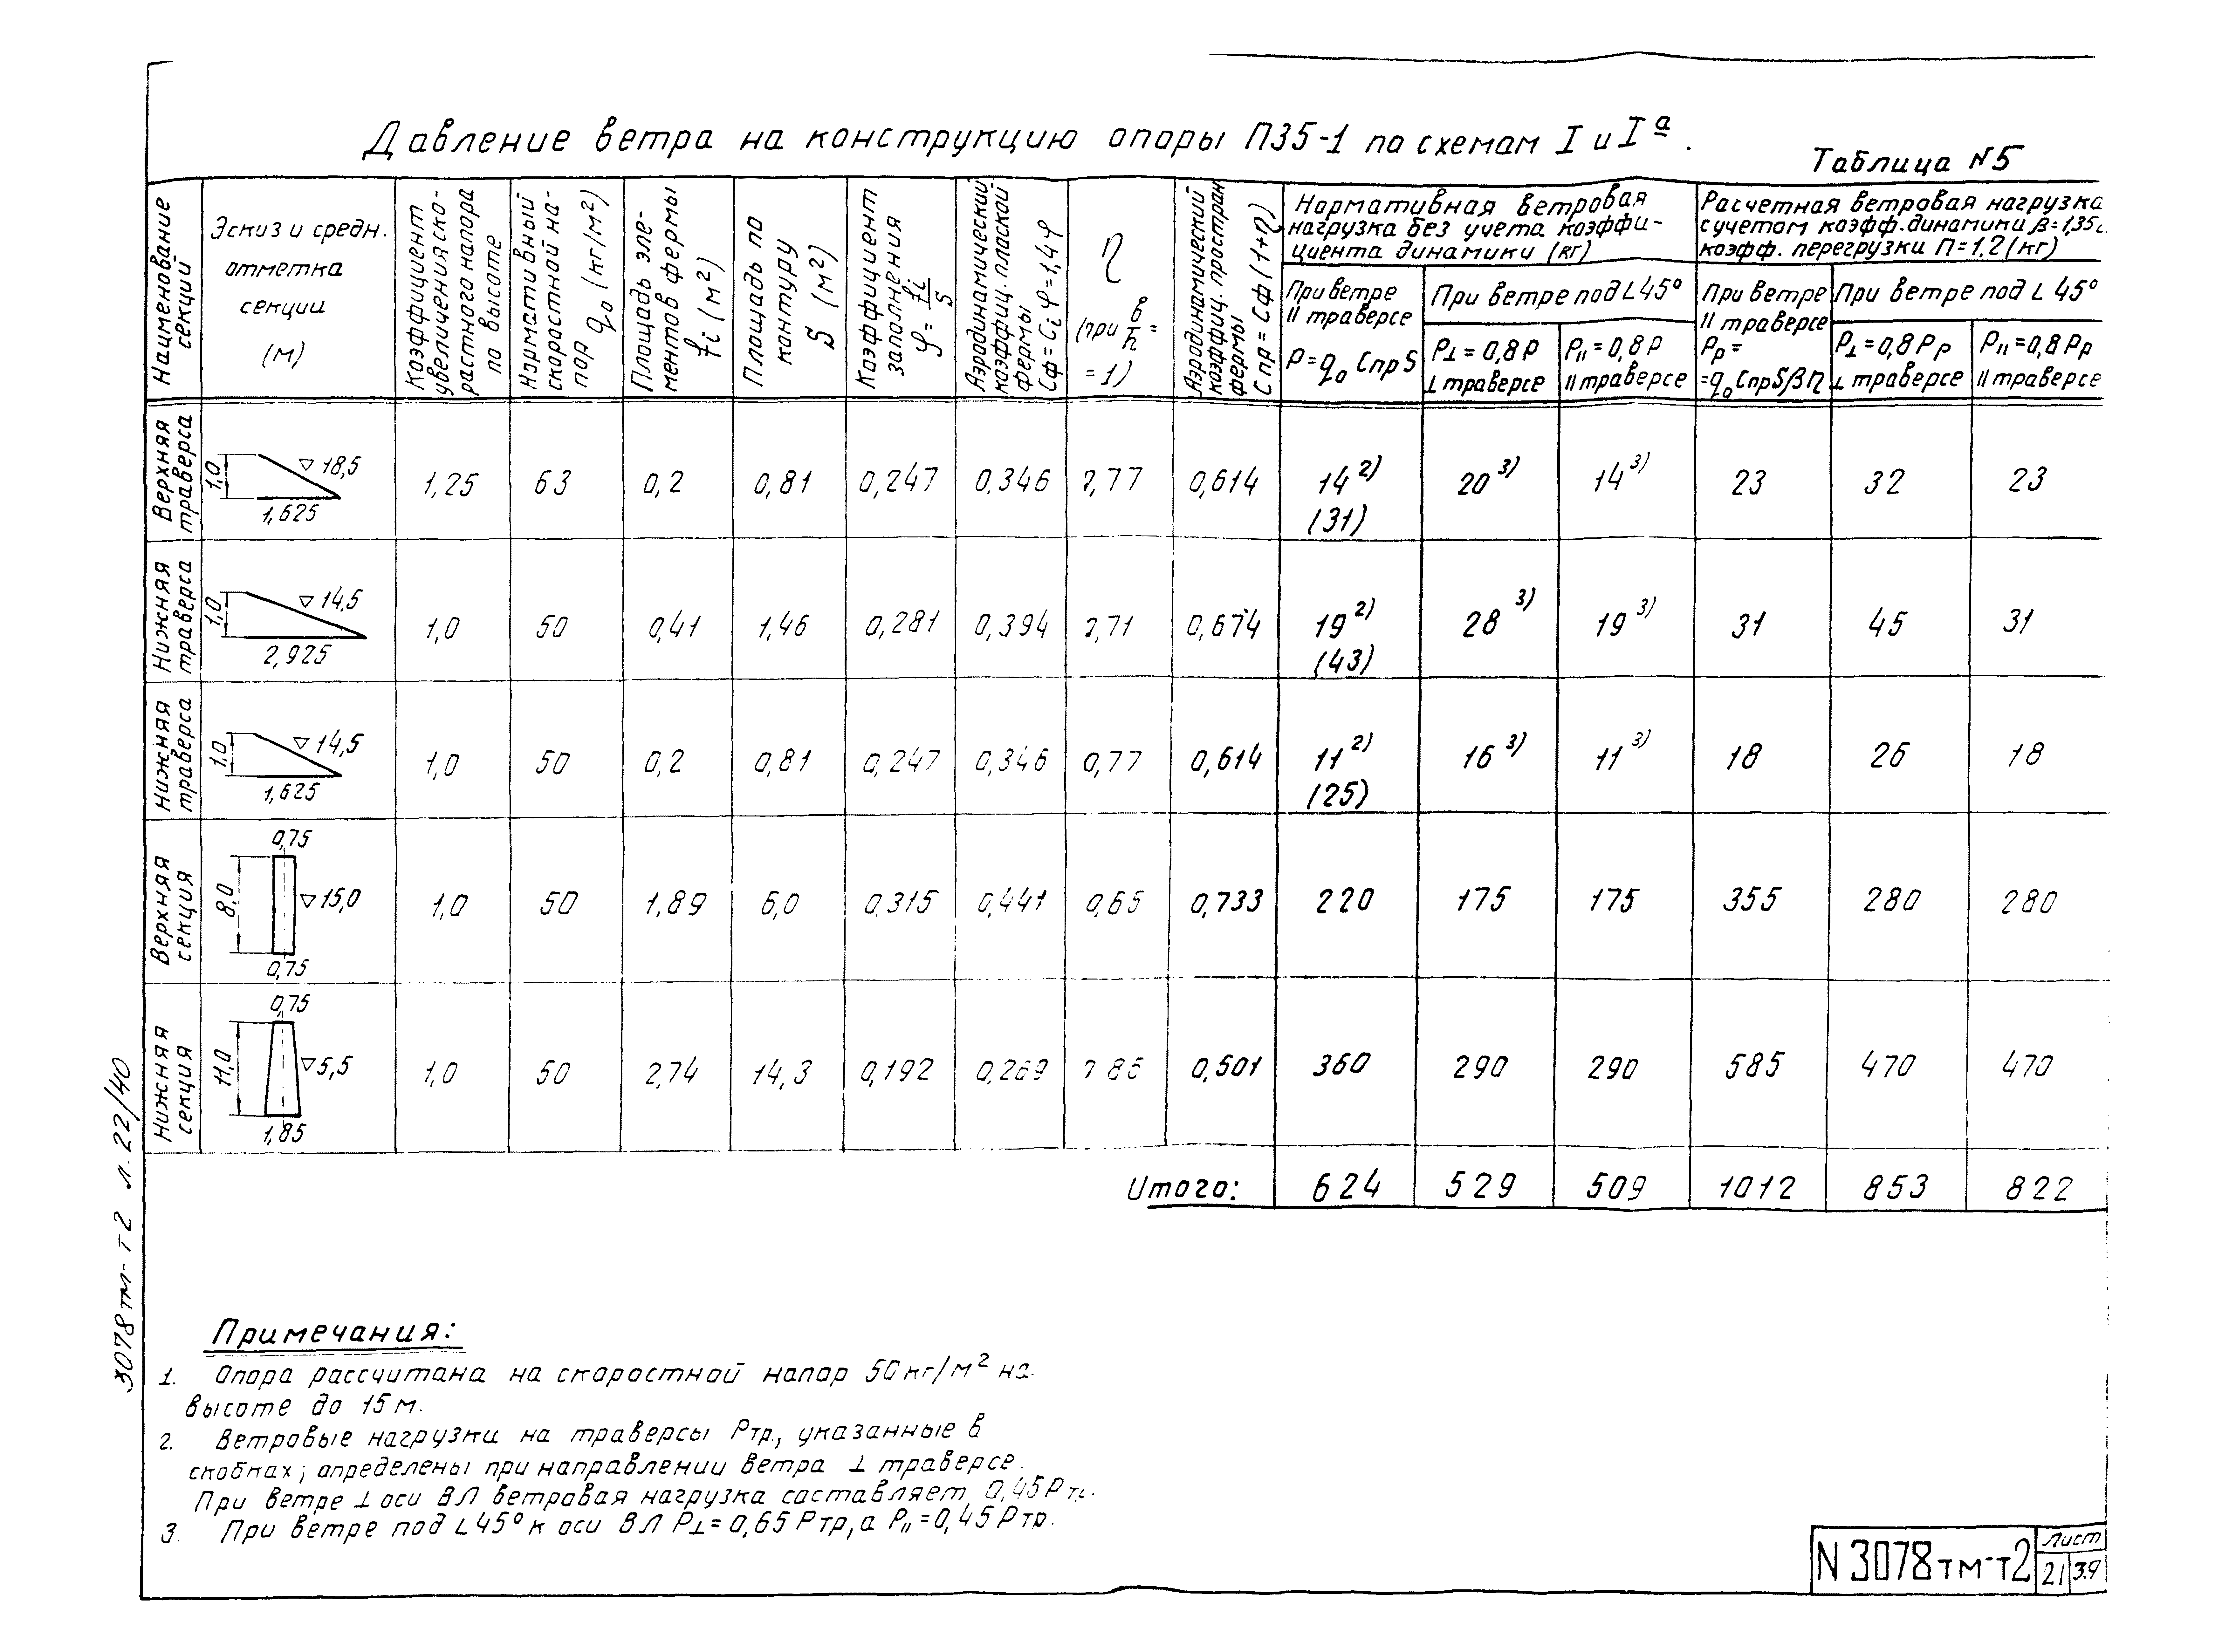 Давление ветра на конструкцию опоры П35-1 по схемам I и Iª.
Таблица N5
Наименование секций
Эскиз и средн. отметка секции (м)
Коэффициент увеличения скоростного напора по высоте
Нормативный скоростной напор q₀ (кг/м²)
Площадь элементов фермы fi (м²)
Площадь по контуру S (м²)
Коэффициент заполнения φ = fi/S
Аэродинамический коэффиц. плоской фермы Cф = Ci φ = 1,4φ
η (при в/h = = 1)
Аэродинамический коэффиц. простран фермы Cпр = Cф (1+η)
Нормативная ветровая нагрузка без учета коэффициента динамики (кг)
Расчетная ветровая нагрузка с учетом коэфф. динамики β = 1,35 и коэфф. перегрузки П = 1,2 (кг)
При ветре || траверсе P = q₀ Cпр S
При ветре под ∟45°
P⊥ = 0,8 P ⊥ траверсе
P|| = 0,8 P || траверсе
При ветре || траверсе Pр = = q₀ Cпр S β П
При ветре под ∟ 45°
P⊥ = 0,8 Pр ⊥ траверсе
P|| = 0,8 Pр || траверсе
Верхняя траверса 1,0 ▽18,5 1,625 1,25 63 0,2 0,81 0,247 0,346 0,77 0,614 14²⁾ (31) 20³⁾ 14³⁾ 23 32 23
Нижняя траверса 1,0 ▽14,5 2,925 1,0 50 0,41 1,46 0,281 0,394 0,71 0,674 19²⁾ (43) 28³⁾ 19³⁾ 31 45 31
Нижняя траверса 1,0 ▽14,5 1,625 1,0 50 0,2 0,81 0,247 0,346 0,77 0,614 11²⁾ (25) 16³⁾ 11³⁾ 18 26 18
Верхняя секция 0,75 8,0 ▽15,0 0,75 1,0 50 1,89 6,0 0,315 0,441 0,65 0,733 220 175 175 355 280 280
Нижняя секция 0,75 11,0 ▽5,5 1,85 1,0 50 2,74 14,3 0,192 0,269 0,86 0,501 360 290 290 585 470 470
Итого: 624 529 509 1012 853 822
Примечания:
1. Опора рассчитана на скоростной напор 50 кг/м² на
высоте до 15 м.
2. Ветровые нагрузки на траверсы Pтр., указанные в
скобках; определены при направлении ветра ⊥ траверсе.
При ветре ⊥ оси ВЛ ветровая нагрузка составляет 0,45 Pтр.
3. При ветре под ∟45° к оси ВЛ P⊥ = 0,65 Pтр, а P|| = 0,45 Pтр.
3078тм-т2 л. 22/40
N 3078тм-т2
Лист
21 39